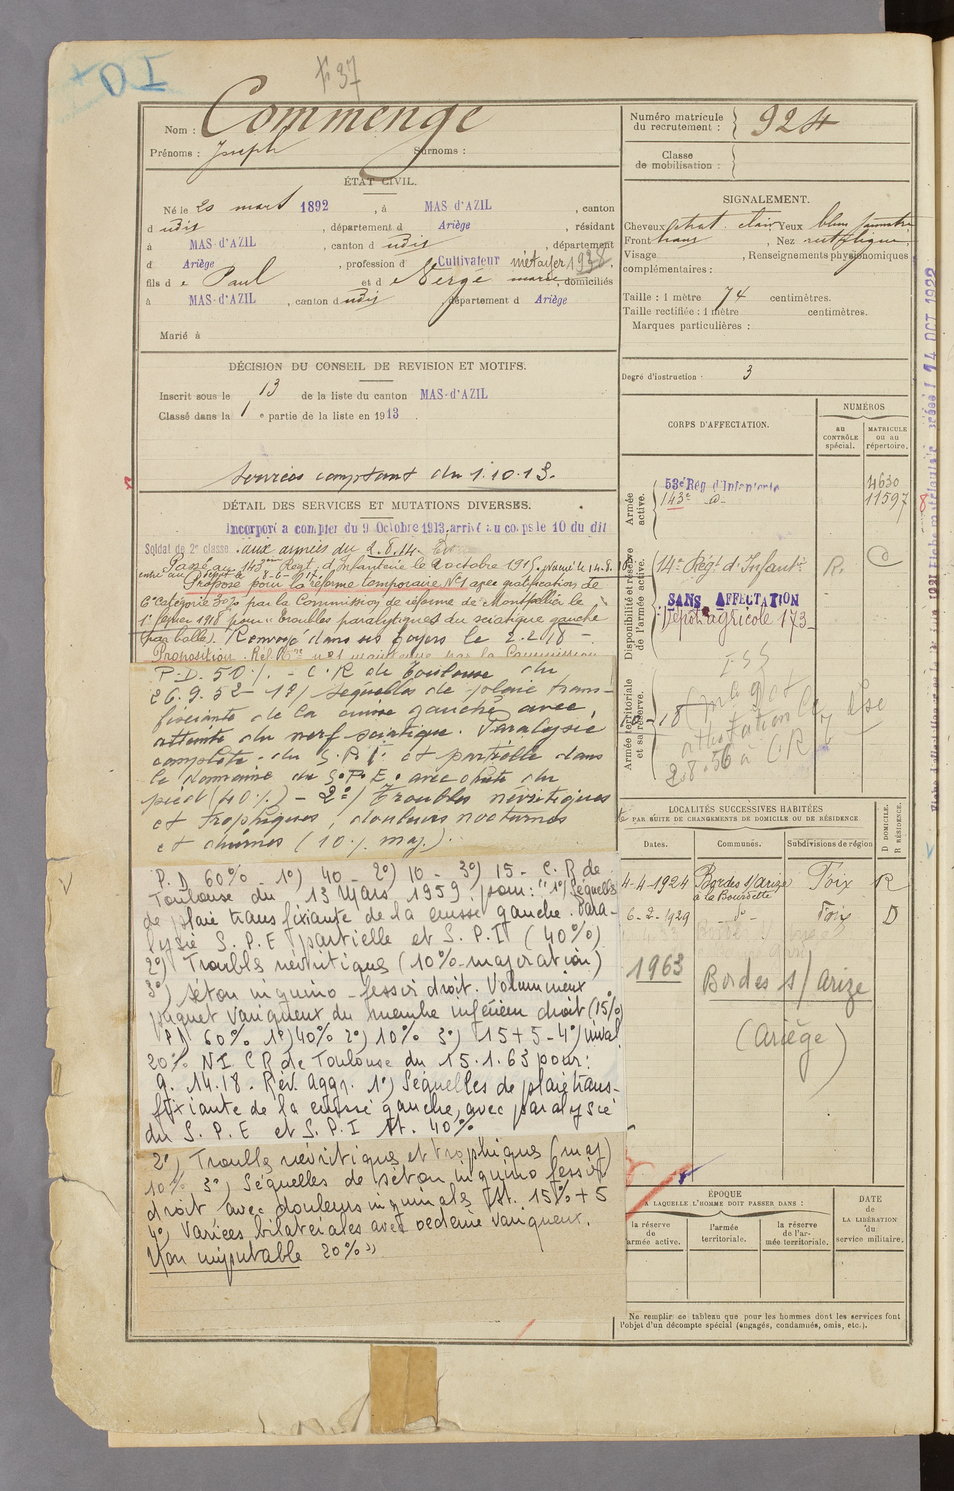 F 37
Nom : Commenge
Prénoms : Joseph Surnoms :
Numéro matricule du recrutement : 924
Classe de mobilisation :
ÉTAT CIVIL.
Né le 20 mars 1892, à MAS d'AZIL, canton
d udit, département d Ariège, résidant
à MAS-d'AZIL, canton d udit, département
d Ariège, profession d Cultivateur métayer 1938.
fils de Paul et de Vergé marie, domiciliés
à MAS-d'AZIL, canton d udit département d Ariège
Marié à
SIGNALEMENT.
Cheveux chat. clair Yeux bleu
Front , Nez rectiligne,
Visage , Renseignements physionomiques
complémentaires :
Taille : 1 mètre 74 centimètres.
Taille rectifiée : 1 mètre centimètres.
Marques particulières :
Degré d'instruction : 3
DÉCISION DU CONSEIL DE REVISION ET MOTIFS.
Inscrit sous le 13 de la liste du canton MAS-d'AZIL
Classé dans la 1 e partie de la liste en 1913.
Services comptant du 1.10.13.
DÉTAIL DES SERVICES ET MUTATIONS DIVERSES.
Incorporé à compter du 9 Octobre 1913. arrivé au corps le 10 du dit
Soldat de 2e classe. aux armées du 2.8.14.
Passé au 143ème Regt d'Infanterie le 2 octobre 1915.
Proposé pour la réforme temporaire N°1 avec gratification de
6e catégorie 30% par la Commission de réforme de Montpellier le
1er février 1918 pour "troubles paralytiques du sciatique gauche
(par balle). Renvoyé dans ses foyers le 2.2.18 -
P.D. 50%. - C.R de Toulouse du
26.9.52 - 1º) Séquelles de plaie trans-
fixiante de la cuisse gauche avec,
atteinte du nerf sciatique. Paralysie
complète du S.P.I. et partielle dans
le domaine du S.P.E. avec chute du
pied (40%) - 2º) Troubles névritiques
et trophiques, douleurs nocturnes
et diurnes (10% maj.)
P.D 60% 1º) 40 - 2º) 10 - 3º) 15 - C.R de
Toulouse du 13 Mars 1959. pour: "1º) Séquelles
de plaie transfixiante de la cuisse gauche. Para-
lysie S.P.E partielle et S.P.I (40%)
2º) Troubles névritiques (10% majoration)
3º) Séton inguino-fessier droit. Volumineux
paquet variqueux du membre inférieur droit (15%)
60% 1º) 40% 2º) 10% 3º) 15+5 - 4º) inval
20% NI CR de Toulouse du 15.1.63 pour:
G. 14.18. Rév. Aggr. 1º) Séquelles de plaie trans-
fixiante de la cuisse gauche, avec paralysie
du S.P.E et S.P.I At. 40%
2º) Troubles névritiques et trophiques (maj)
10% 3º) Séquelles de séton inguino fessier
droit avec douleurs inguinales At. 15% + 5
4º) Varices bilatérales avec oedème variqueux.
Non imputable 20% »
CORPS D'AFFECTATION.
NUMÉROS
AU CONTRÔLE spécial.
MATRICULE OU AU répertoire.
Armée active.
53e Rég d'Infanterie 4630
143e - d°- 11597
Disponibilité et réserve de l'armée active.
14e Régt d'Infantie R. C
SANS AFFECTATION
Dépôt agricole 173
Armée territoriale et sa réserve.
LOCALITÉS SUCCESSIVES HABITÉES
PAR SUITE DE CHANGEMENTS DE DOMICILE OU DE RÉSIDENCE
D DOMICILE. R RÉSIDENCE.
Dates. Communes. Subdivisions de région
4-4-1924 Bordes s/Arize Foix R
à la Boussette
6-2-1929 -d°- Foix D
1963 Bordes s/ Arize
(Ariège)
ÉPOQUE
A LAQUELLE L'HOMME DOIT PASSER DANS :
la réserve de l'armée active.
l'armée territoriale.
la réserve de l'armée territoriale.
DATE DE LA LIBÉRATION du service militaire.
Ne remplir ce tableau que pour les hommes dont les services font
l'objet d'un décompte spécial (engagés, condamnés, omis, etc.).